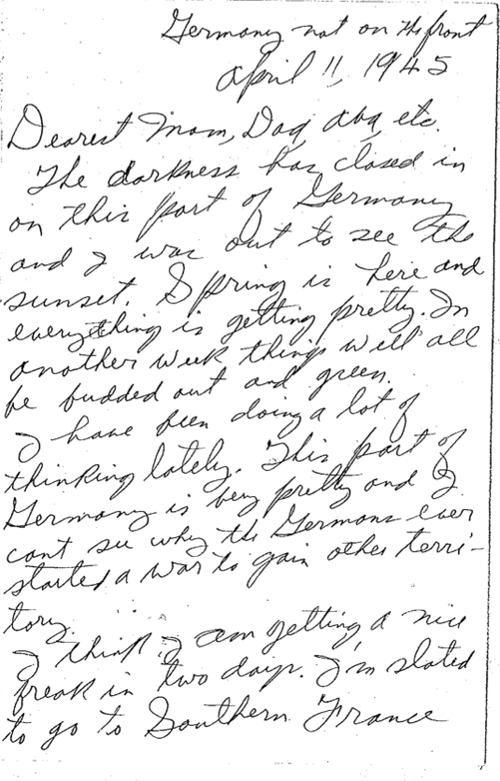 Germany not on the front
April 11, 1945
Dearest Mom, Dad, Abq, etc.
The darkness has closed in
on this part of Germany
and I was out to see the
sunset. Spring is here and
everything is getting pretty. In
another week things will all
be budded out and green.
I have been doing a lot of
thinking lately. This part of
Germany is very pretty and I
cant see why the Germans ever
started a war to gain other terri-
tory.
I think I am getting a nice
break in two days. I'm slated
to go to Southern France